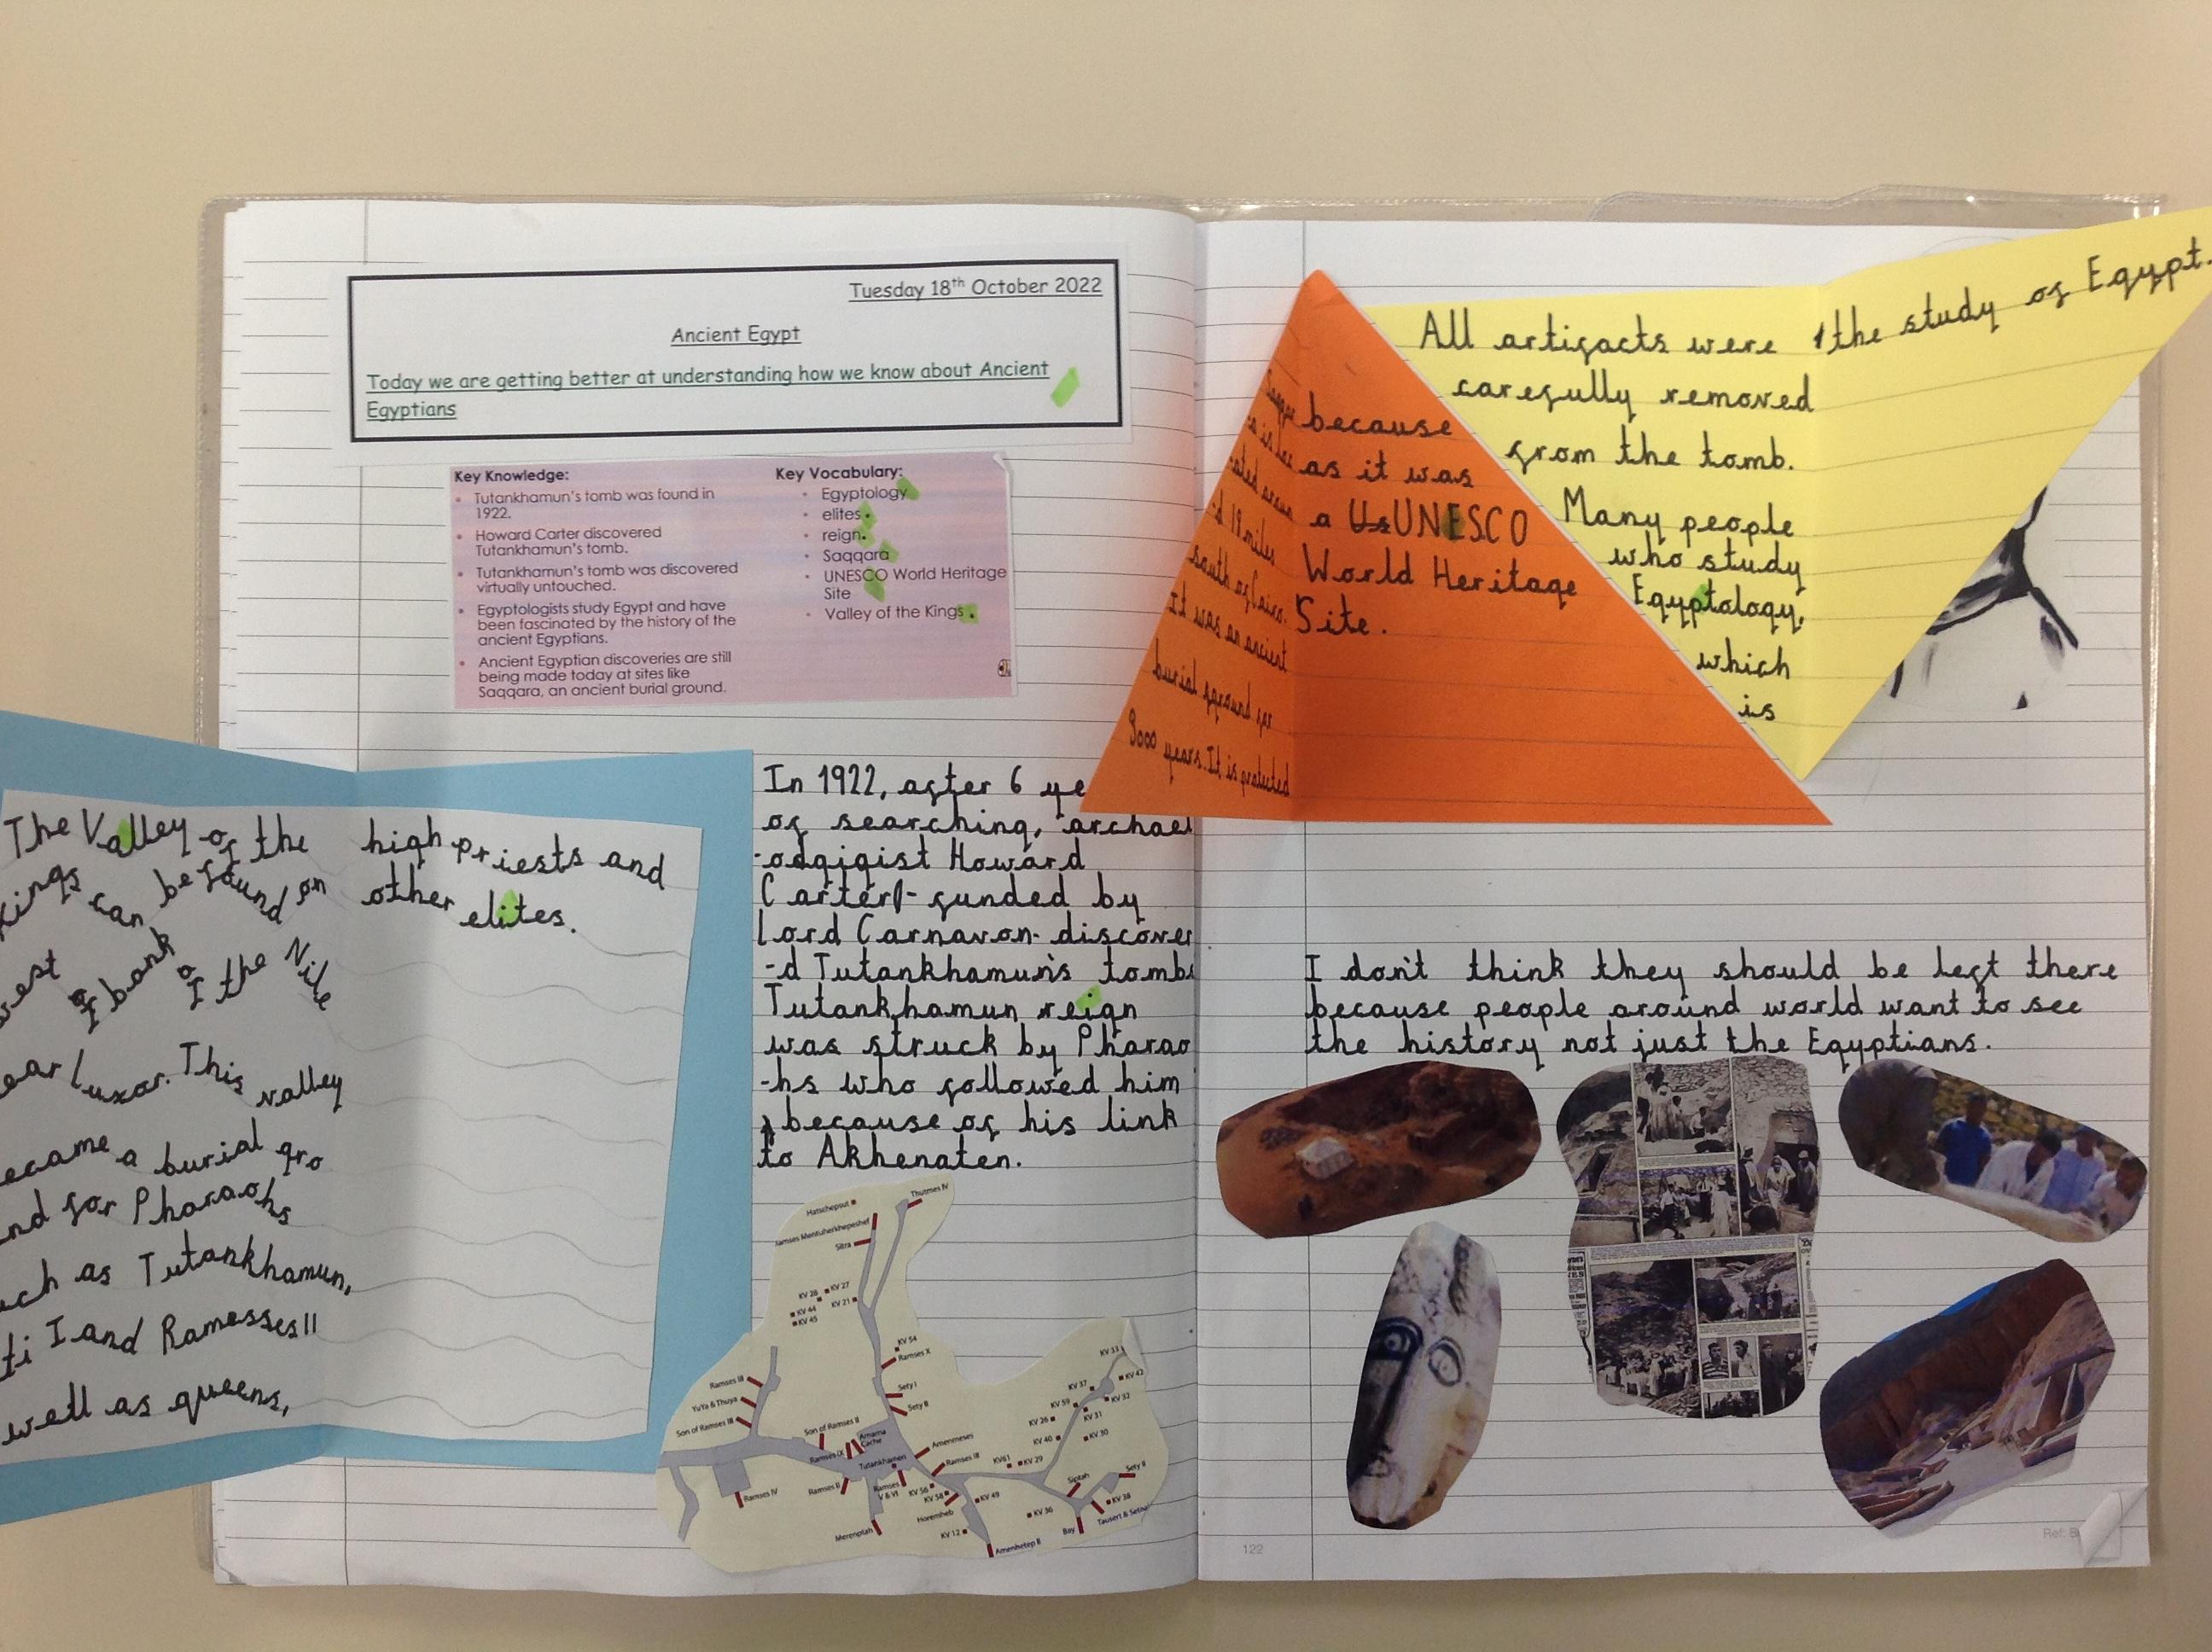 Tuesday 18th October 2022
Ancient Egypt
Today we are getting better at understanding how we know about Ancient
Egyptians
Key Knowledge:
• Tutankhamun's tomb was found in
1922.
• Howard Carter discovered
Tutankhamun's tomb.
• Tutankhamun's tomb was discovered
virtually untouched.
• Egyptologists study Egypt and have
been fascinated by the history of the
ancient Egyptians.
• Ancient Egyptian discoveries are still
being made today at sites like
Saqqara, an ancient burial ground.
Key Vocabulary:
• Egyptology
• elites.
• reign.
• Saqqara
• UNESCO World Heritage
Site
• Valley of the Kings.
The Valley of the
Kings can be found on
west of bank of the Nile
ear luxor. This valley
ecame a burial gro
nd for Pharaohs
uch as Tutankhamun,
ti I and Ramesses II
well as queens,
high priests and
other elites.
In 1922, after 6 ye
of searching, archael
-odgigist Howard
Carter - funded by
lord Carnavon- discover
-d Tutankhamun's tomb
Tutankhamun reign
was struck by Pharao
-hs who followed him
because of his link
to Akhenaten.
Hatschepsut
Thutmes IV
Ramses Mentuherkhepeshef
Sitra
KV 28
KV 27
KV 44
KV 21
KV 45
KV 54
Ramses X
Sety I
Sety II
Ramses III
YuYa & Thuya
Son of Ramses III
Son of Ramses II
Amarna
Cache
Ramses IX
Tutankhamen
Amenmeses
Ramses III
Ramses IV
Ramses II
Ramses
V & VI
KV 56
KV 58
Horemheb
KV 49
Merenptah
KV 12
Amenhetep II
KV61
KV 29
KV 40
KV 26
KV 59
KV 37
KV 33
KV 42
KV 32
KV 31
KV 30
Siptah
Sety II
KV 36
KV 38
Bay
Tausert &
located aroun
d 19 miles
south of Cairo.
It was an ancient
burial ground for
3000 years. It is protected
because
as it was
a Us UNESCO
World Heritage
Site.
All artifacts were
carefully removed
from the tomb.
Many people
who study
Egyptology,
which
is
the study of Egypt.
I don't think they should be left there
because people around world want to see
the history not just the Egyptians.
122
Ref: